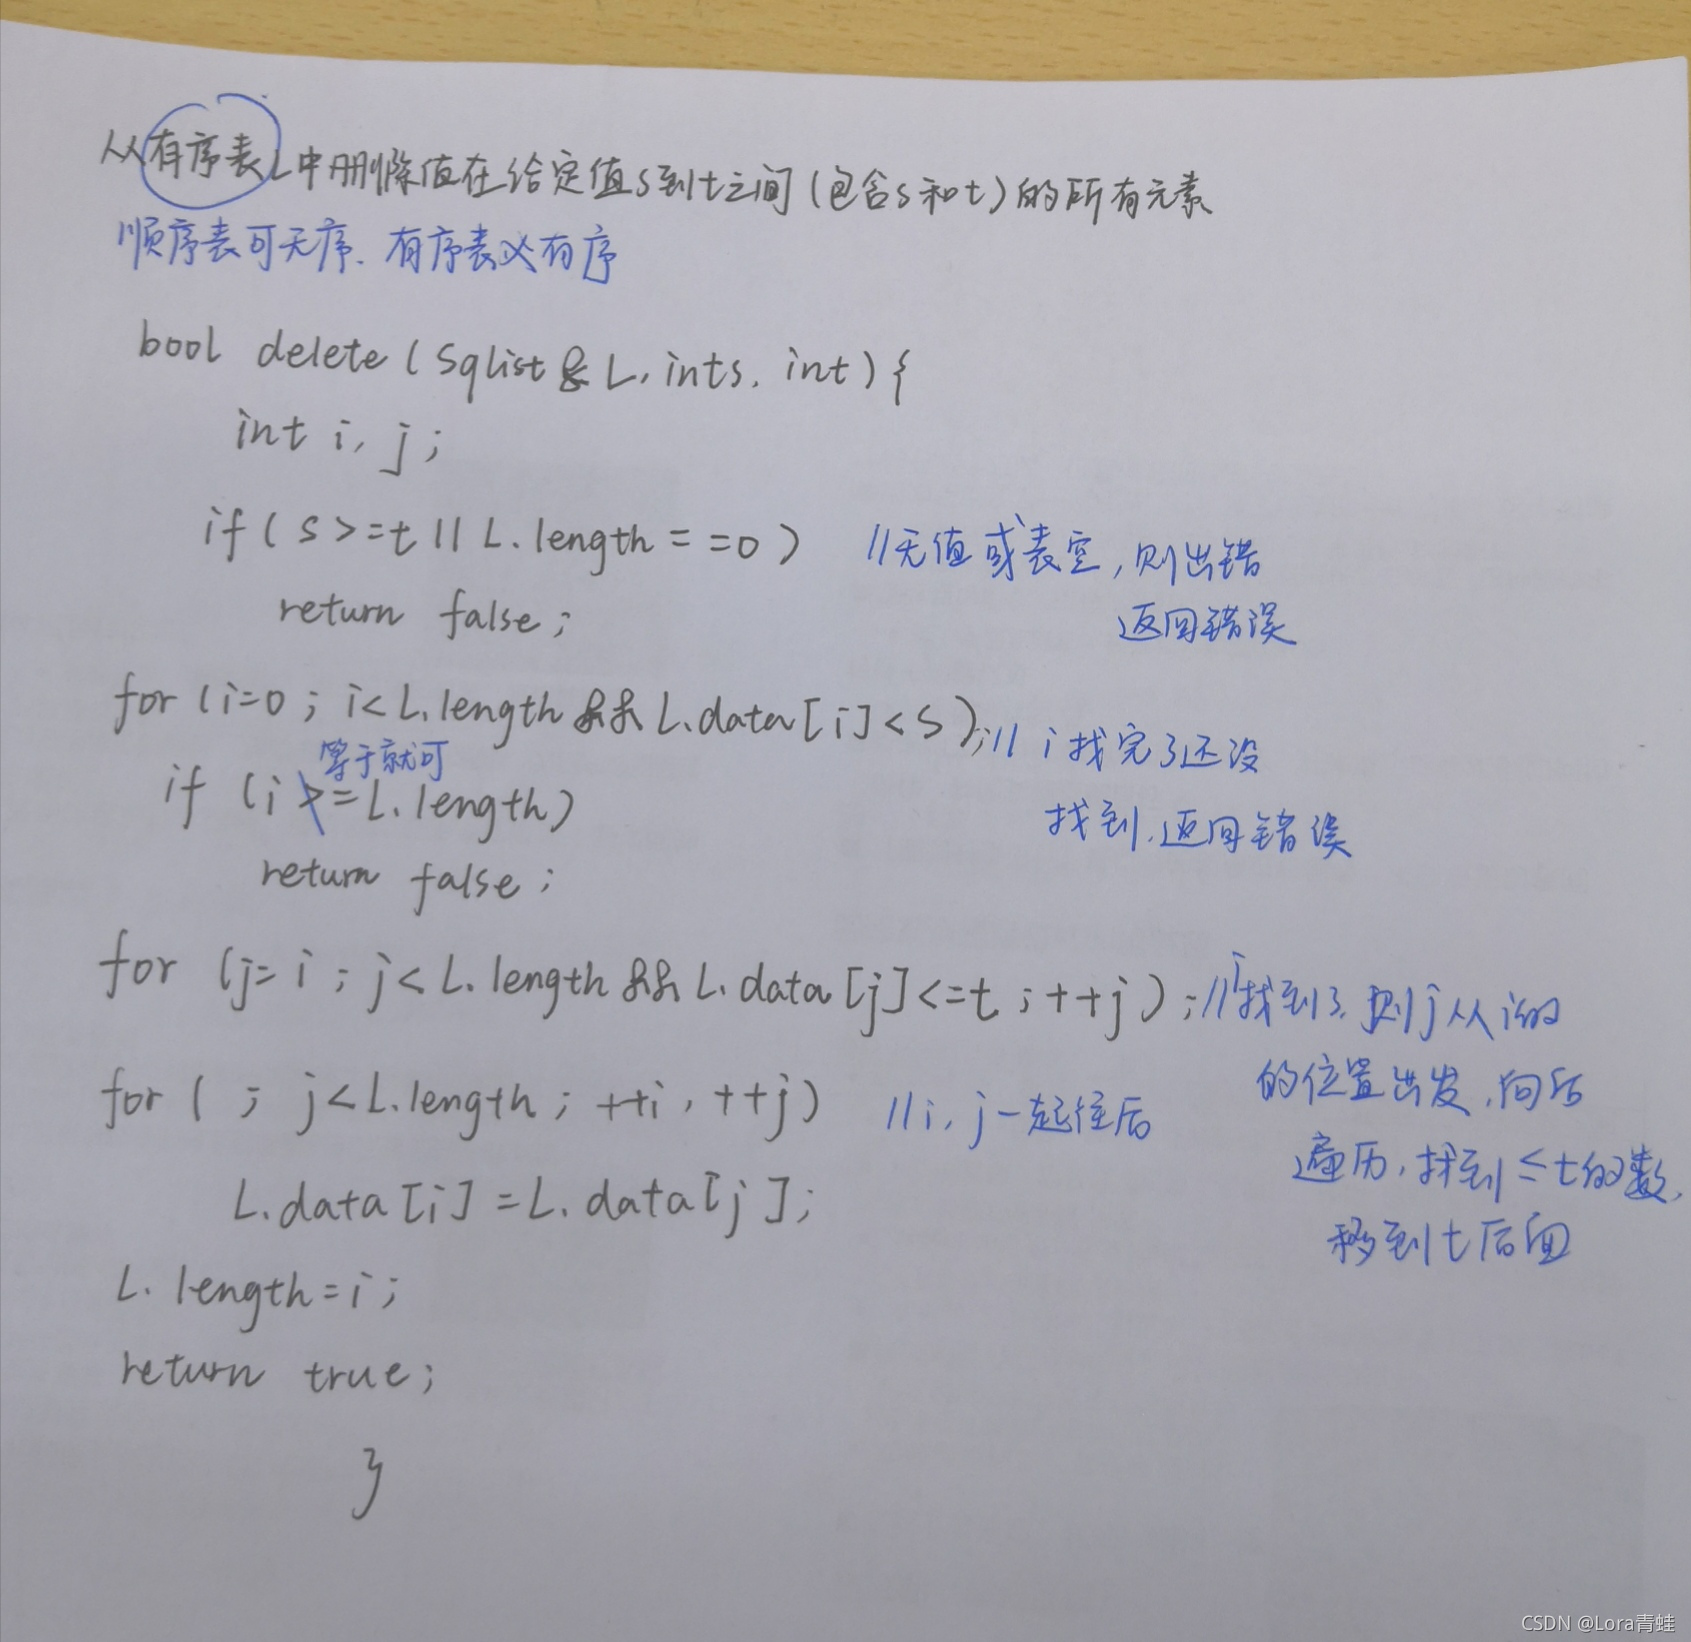 从有序表L中删除值在给定值s到t之间(包含s和t)的所有元素
顺序表可无序.有序表必有序
bool delete(Sqlist & L, int s, int){
int i, j;
if( s >=t || L.length = =0 ) //无值或表空,则出错
return false; 返回错误
for (i=0; i<L.length && L.data[i]<s); // i找完了还没
等于就可
if (i >=L.length) 找到.返回错误
return false;
for (j= i ; j< L.length && L.data[j]<=t ; ++j) ; //找到了.则j从i的
的位置出发,向后
for ( ; j<L.length ; ++i, ++j) //i, j一起往后
遍历,找到≤t的数,
L.data[i] =L.data[j];
移到t后面
L.length=i;
return true;
}
CSDN @Lora青蛙